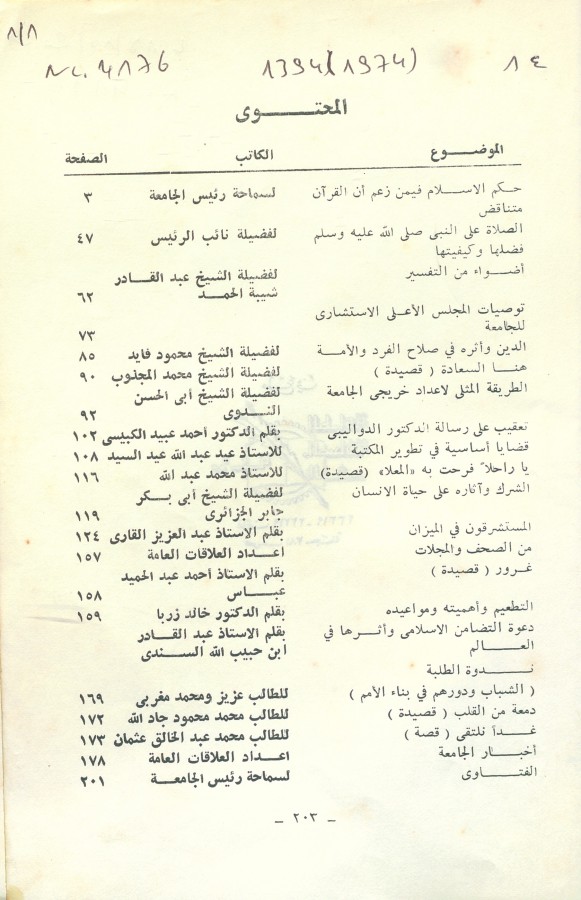 ١/١
Nc. 4176 1394/(1974) ١٤
المحتـــــوى
الموضـــوع الكاتب الصفحة
حكم الاســـلام فيمن زعم أن القرآن لسماحة رئيس الجامعة ٣
متناقض
الصلاة على النبى صلى الله عليه وسلم لفضيلة نائب الرئيس ٤٧
فضلها وكيفيتها
أضـــواء من التفسير لفضيلة الشيخ عبد القـــادر
شيبة الحمـــد ٦٢
توصيات المجلس الأعلى الاستشارى
للجامعة ٧٣
الدين وأثره في صلاح الفرد والأمـــة لفضيلة الشيخ محمود فايد ٨٥
هنـــا السعادة ( قصيدة ) لفضيلة الشيخ محمد المجذوب ٩٠
الطريقة المثلى لاعداد خريجى الجامعة لفضيلة الشيخ أبى الحسن
النـــدوى ٩٢
تعقيب على رسالة الدكتور الدواليبى بقلم الدكتور أحمد عبيد الكبيسى ١٠٢
قضايا أساسية في تطوير المكتبة للاستاذ عبد الله عبد السيد ١٠٨
يا راحلاً فرحت به «المعلا» (قصيدة) للاستاذ محمد عبد الله ١١٦
الشرك وآثاره على حياة الانسان لفضيلة الشيخ أبى بـــكر
جابر الجزائرى ١١٩
المستشرقون في الميزان بقلم الاستاذ عبد العزيز القارى ١٢٤
من الصحف والمجلات اعـداد العلاقات العامة ١٥٧
غـــرور ( قصيدة ) بقلم الاستاذ أحمد عبد الحميد
عبـــاس ١٥٨
التطعيم وأهميته ومواعيده بقلم الدكتور خالد زربا ١٥٩
دعوة التضامن الاسلامى وأثـــرها في بقلم الاستاذ عبد القـــادر
العـــالم ابن حبيب الله الســـندى
نـــدوة الطلبة
( الشباب ودورهم في بناء الأمم ) للطالب عزيز ومحمد مغربى ١٦٩
دمعة من القلب ( قصيدة ) للطالب محمد محمود جاد الله ١٧٢
غـــداً نلتقى ( قصة ) للطالب محمد عبد الخالق عثمان ١٧٣
أخبـــار الجامعة اعـداد العلاقات العامة ١٧٨
الفتـــاوى لسماحة رئيس الجامعـــة ٢٠١
— ٢٠٣ —